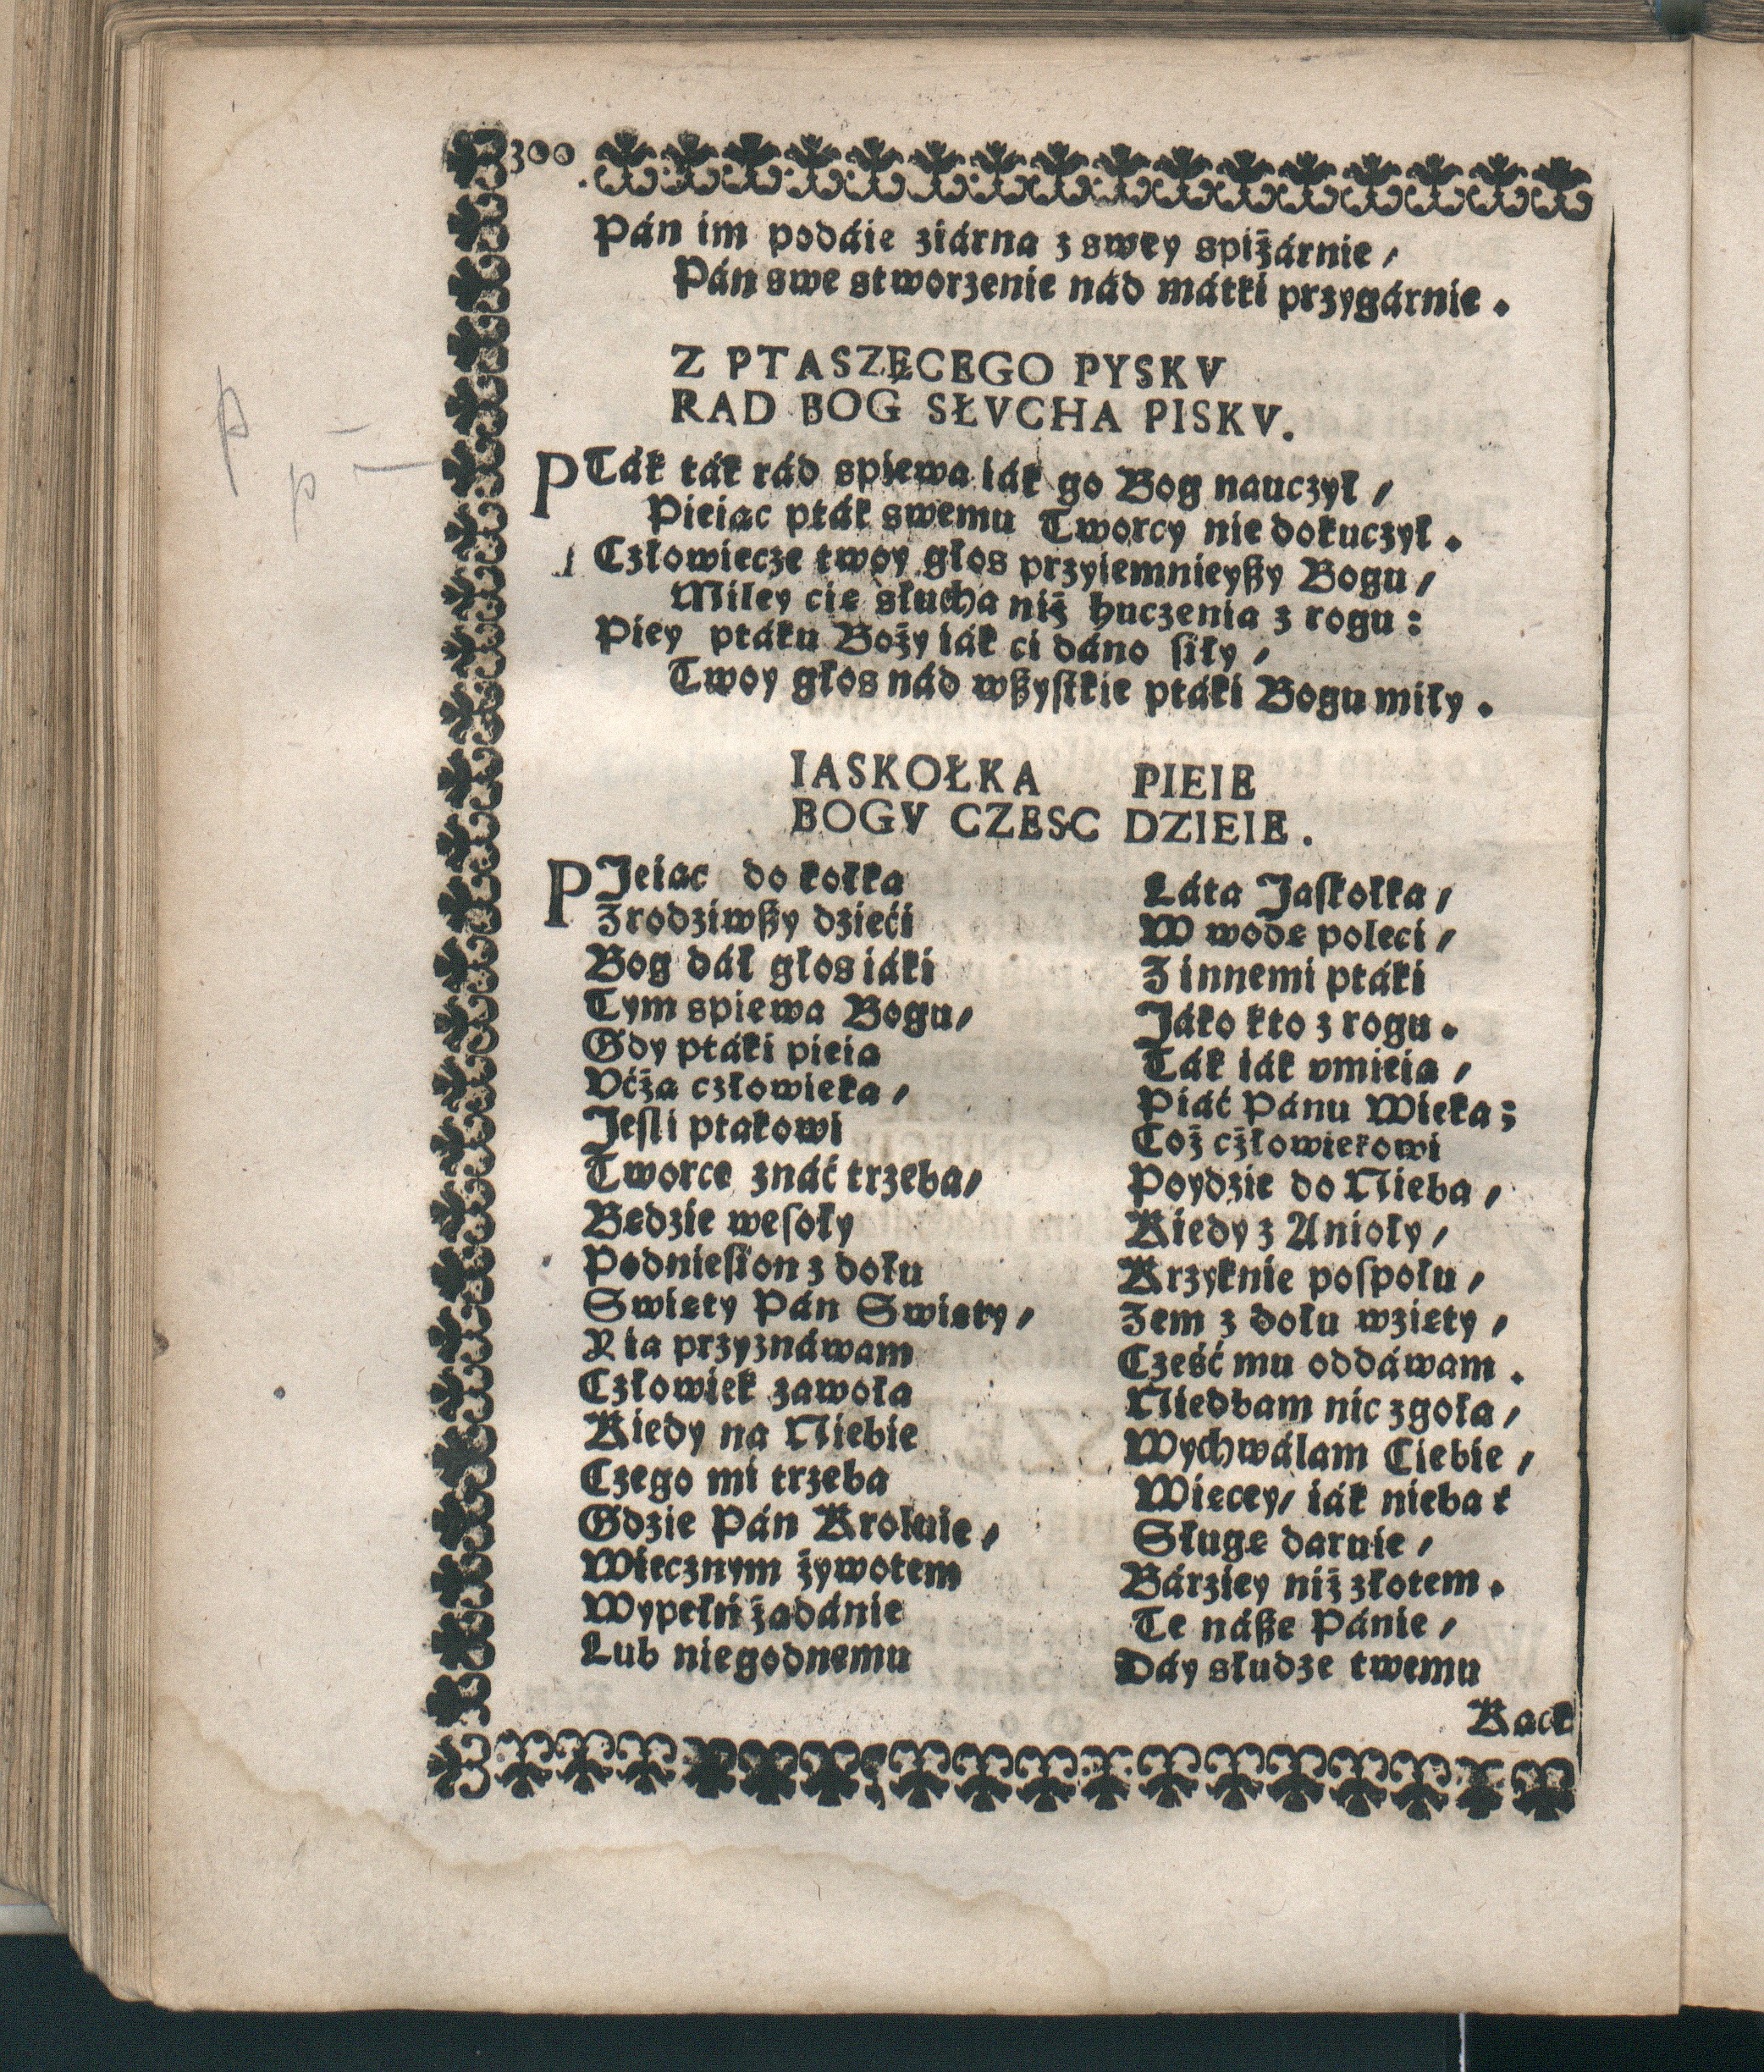 300
Pán im podáie ziárna z swey spiżárnie /
Pán swe stworzenie nád mátki przygárnie .
Z PTASZĘCEGO PYSKV
RAD BOG SŁVCHA PISKV.
PTák ták rád spiewa iák go Bog nauczył /
Pieiąc pták swemu Tworcy nie dokuczył .
Człowiecze twoy głos przyiemnieyßy Bogu /
Miley cię słucha niż huczenia z rogu :
Piey ptáku Boży iák ci dáno ſiły /
Twoy głos nád wßyſtkie ptáki Bogu miły .
IASKOŁKA PIEIE
BOGV CZESC DZIEIE .
PJeiąc do kołka Láta Jaſkołka /
Zrodziwßy dzieći W wodę poleci /
Bog dáł głos iáki Z innemi ptáki
Tym spiewa Bogu / Jáko kto z rogu .
Gdy ptáki pieią Ták iák vmieią /
Vćżą człowieka / Piáć Pánu Wieka ;
Jeſli ptakowi Coż cżłowiekowi
Tworcę znáć trzeba / Poydzie do Nieba /
Będzie weſoły Kiedy z Anioły /
Podnieſion z dołu Krzyknie poſpołu /
Swięty Pán Swięty / Zem z dołu wzięty /
Y ia przyznáwam Cześć mu oddáwam .
Człowiek zawoła Niedbam nic zgoła /
Kiedy na Niebie Wychwálam Ciebie /
Czego mi trzeba Więcey / iák nieba ?
Gdzie Pán Kroluie / Sługę daruie /
Wiecznym żywotem Bárziey niż złotem .
Wypełń żądánie Te náße Pánie /
Lub niegodnemu Dáy słudze twemu
Rack